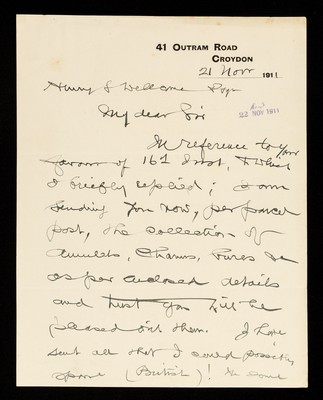 41 OUTRAM ROAD
CROYDON
21 Novr 1911
Henry S Wellcome Esqr
22 NOV 1911
My dear Sir
In reference to your
favour of 16th Inst, to which
I briefly replied; I am
sending you now, per parcel
post, the collection of
Amulets, Charms, Cures &c
as per enclosed details
and trust you will be
pleased with them. I have
sent all that I could possibly
spare (British)! &